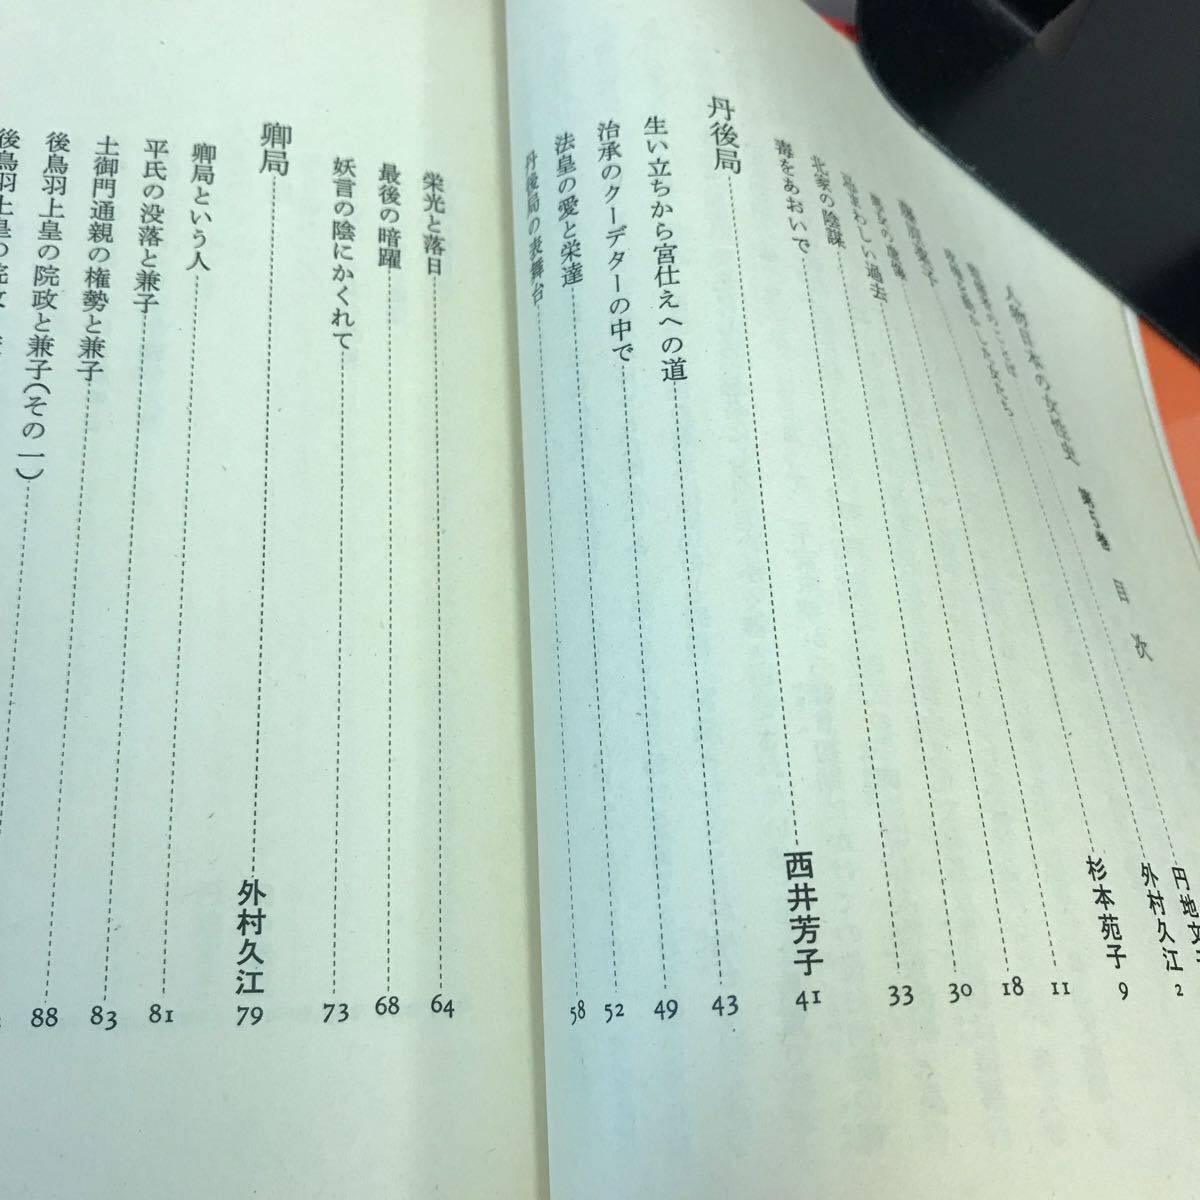 人物日本の女性史 第5巻 目次
円地文子
外村久江 2
杉本苑子 9
11
18
忌まわしい過去 30
北家の陰謀 33
毒をあおいで
丹後局 西井芳子 41
生い立ちから宮仕えへの道 43
治承のクーデターの中で 49
法皇の愛と栄達 52
丹後局の表舞台 58
栄光と落日 64
最後の暗躍 68
妖言の陰にかくれて 73
卿局 外村久江 79
卿局という人 81
平氏の没落と兼子 83
土御門通親の権勢と兼子 88
後鳥羽上皇の院政と兼子(その一)
後鳥羽上皇の院政